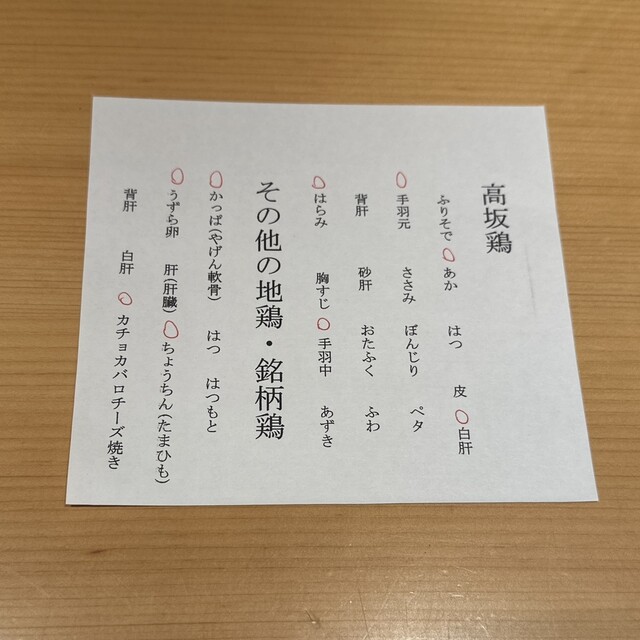 高坂鶏
ふりそで ○あか はつ 皮 ○白肝
○手羽元 ささみ ぼんじり ペタ
背肝 砂肝 おたふく ふわ
○はらみ 胸すじ ○手羽中 あずき
その他の地鶏・銘柄鶏
○かっぱ(やげん軟骨) はつ はつもと
○うずら卵 肝(肝臓) ○ちょうちん(たまひも)
背肝 白肝 ○カチョカバロチーズ焼き